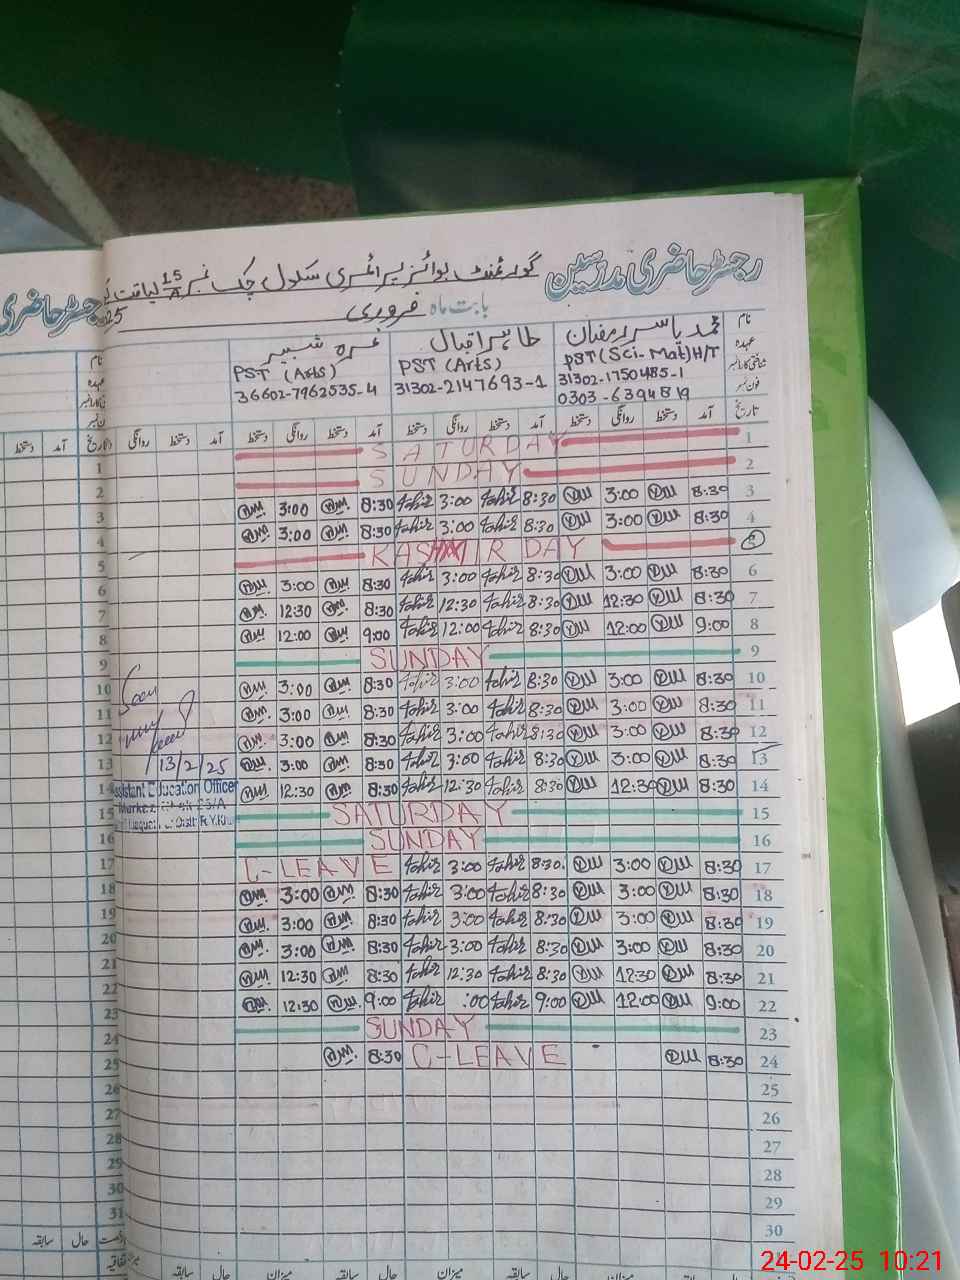 رجسٹر حاضری مدرسین گورنمنٹ بوائز پرائمری سکول چک نمبر 15/A لیاقت
بابت ماہ فروری 25
رجسٹر حاضری
نام محمد یاسر رمضان طاہر اقبال
عہدہ PST (Sci-Mat) H/T PST (Arts) PST (Arts)
شناختی کارڈ نمبر 31302-1750485-1 31302-2147693-1 36602-7962535-4
فون نمبر 0303-6394819
تاریخ آمد دستخط روانگی دستخط آمد دستخط روانگی دستخط آمد دستخط روانگی دستخط آمد دستخط روانگی
SATURDAY 1
SUNDAY 2
3:00 8:30 tahir 3:00 tahir 8:30 3:00 8:30 3
3:00 8:30 tahir 3:00 tahir 8:30 3:00 8:30 4
KASHMIR DAY 5
3:00 8:30 tahir 3:00 tahir 8:30 3:00 8:30 6
12:30 8:30 tahir 12:30 tahir 8:30 12:30 8:30 7
12:00 9:00 tahir 12:00 tahir 8:30 12:00 9:00 8
SUNDAY 9
3:00 8:30 tahir 3:00 tahir 8:30 3:00 8:30 10
3:00 8:30 tahir 3:00 tahir 8:30 3:00 8:30 11
3:00 8:30 tahir 3:00 tahir 8:30 3:00 8:30 12
3:00 8:30 tahir 3:00 tahir 8:30 3:00 8:30 13
12:30 8:30 tahir 12:30 tahir 8:30 12:30 8:30 14
SATURDAY 15
SUNDAY 16
C-LEAVE tahir 3:00 tahir 8:30 3:00 8:30 17
3:00 8:30 tahir 3:00 tahir 8:30 3:00 8:30 18
3:00 8:30 tahir 3:00 tahir 8:30 3:00 8:30 19
3:00 8:30 tahir 3:00 tahir 8:30 3:00 8:30 20
12:30 8:30 tahir 12:30 tahir 8:30 12:30 8:30 21
12:30 9:00 tahir :00 tahir 9:00 12:00 9:00 22
SUNDAY 23
8:30 C-LEAVE 8:30 24
25
26
27
28
29
30
Seen
13/2/25
Assistant Education Officer
نام
عہدہ
تاریخ
آمد دستخط
1
2
3
4
5
6
7
8
9
10
11
12
13
14
15
16
17
18
19
20
21
22
23
24
25
26
27
28
29
30
31
حال سابقہ
میزان حال سابقہ میزان حال سابقہ میزان حال سابقہ
24-02-25 10:21